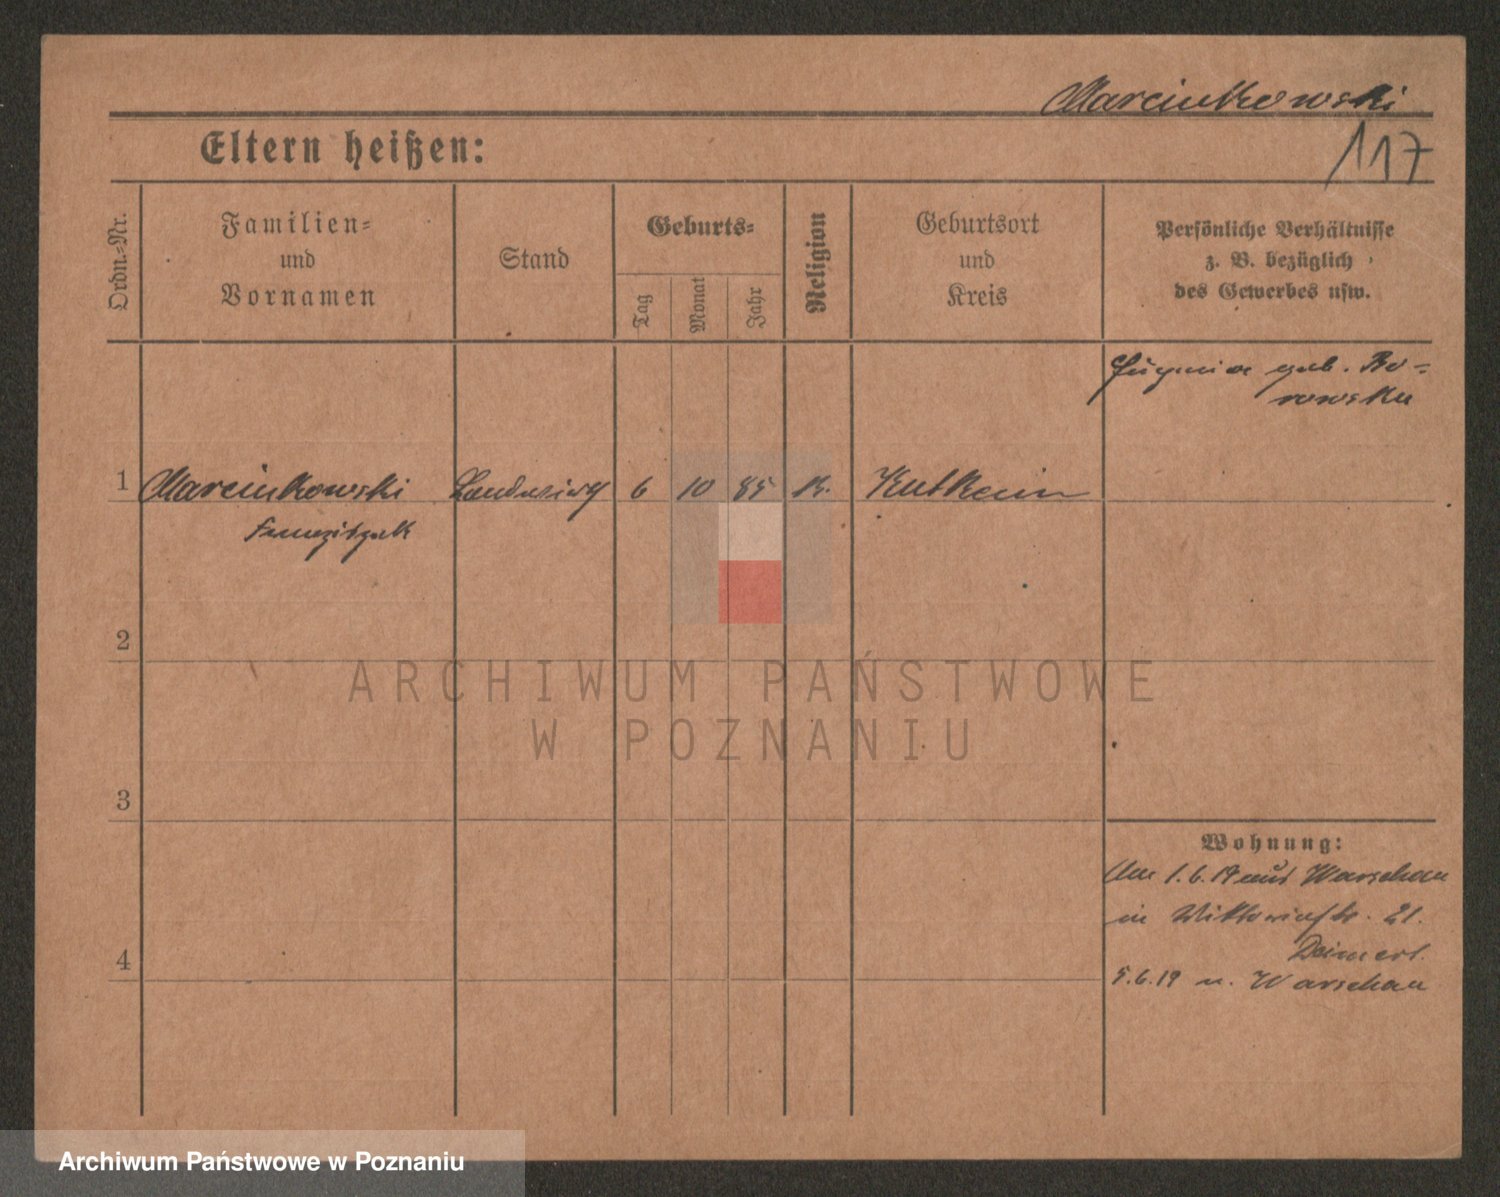 Marcinkowski
117
Eltern heißen:
Ordn.-Nr.
Familien-
und
Vornamen
Stand
Geburts-
Tag
Monat
Jahr
Religion
Geburtsort
und
Kreis
Persönliche Verhältnisse
z. B. bezüglich
des Gewerbes usw.
geb. Bo-
rowska
1 Marcinkowski Landwirt 6 10 85 K.
Franziszek
2
3
4
Wohnung:
Am 1.6.19 aus Warschau
in Viktoriastr. 21.
5.6.19 n. Warschau
ARCHIWUM PAŃSTWOWE
W POZNANIU
Archiwum Państwowe w Poznaniu